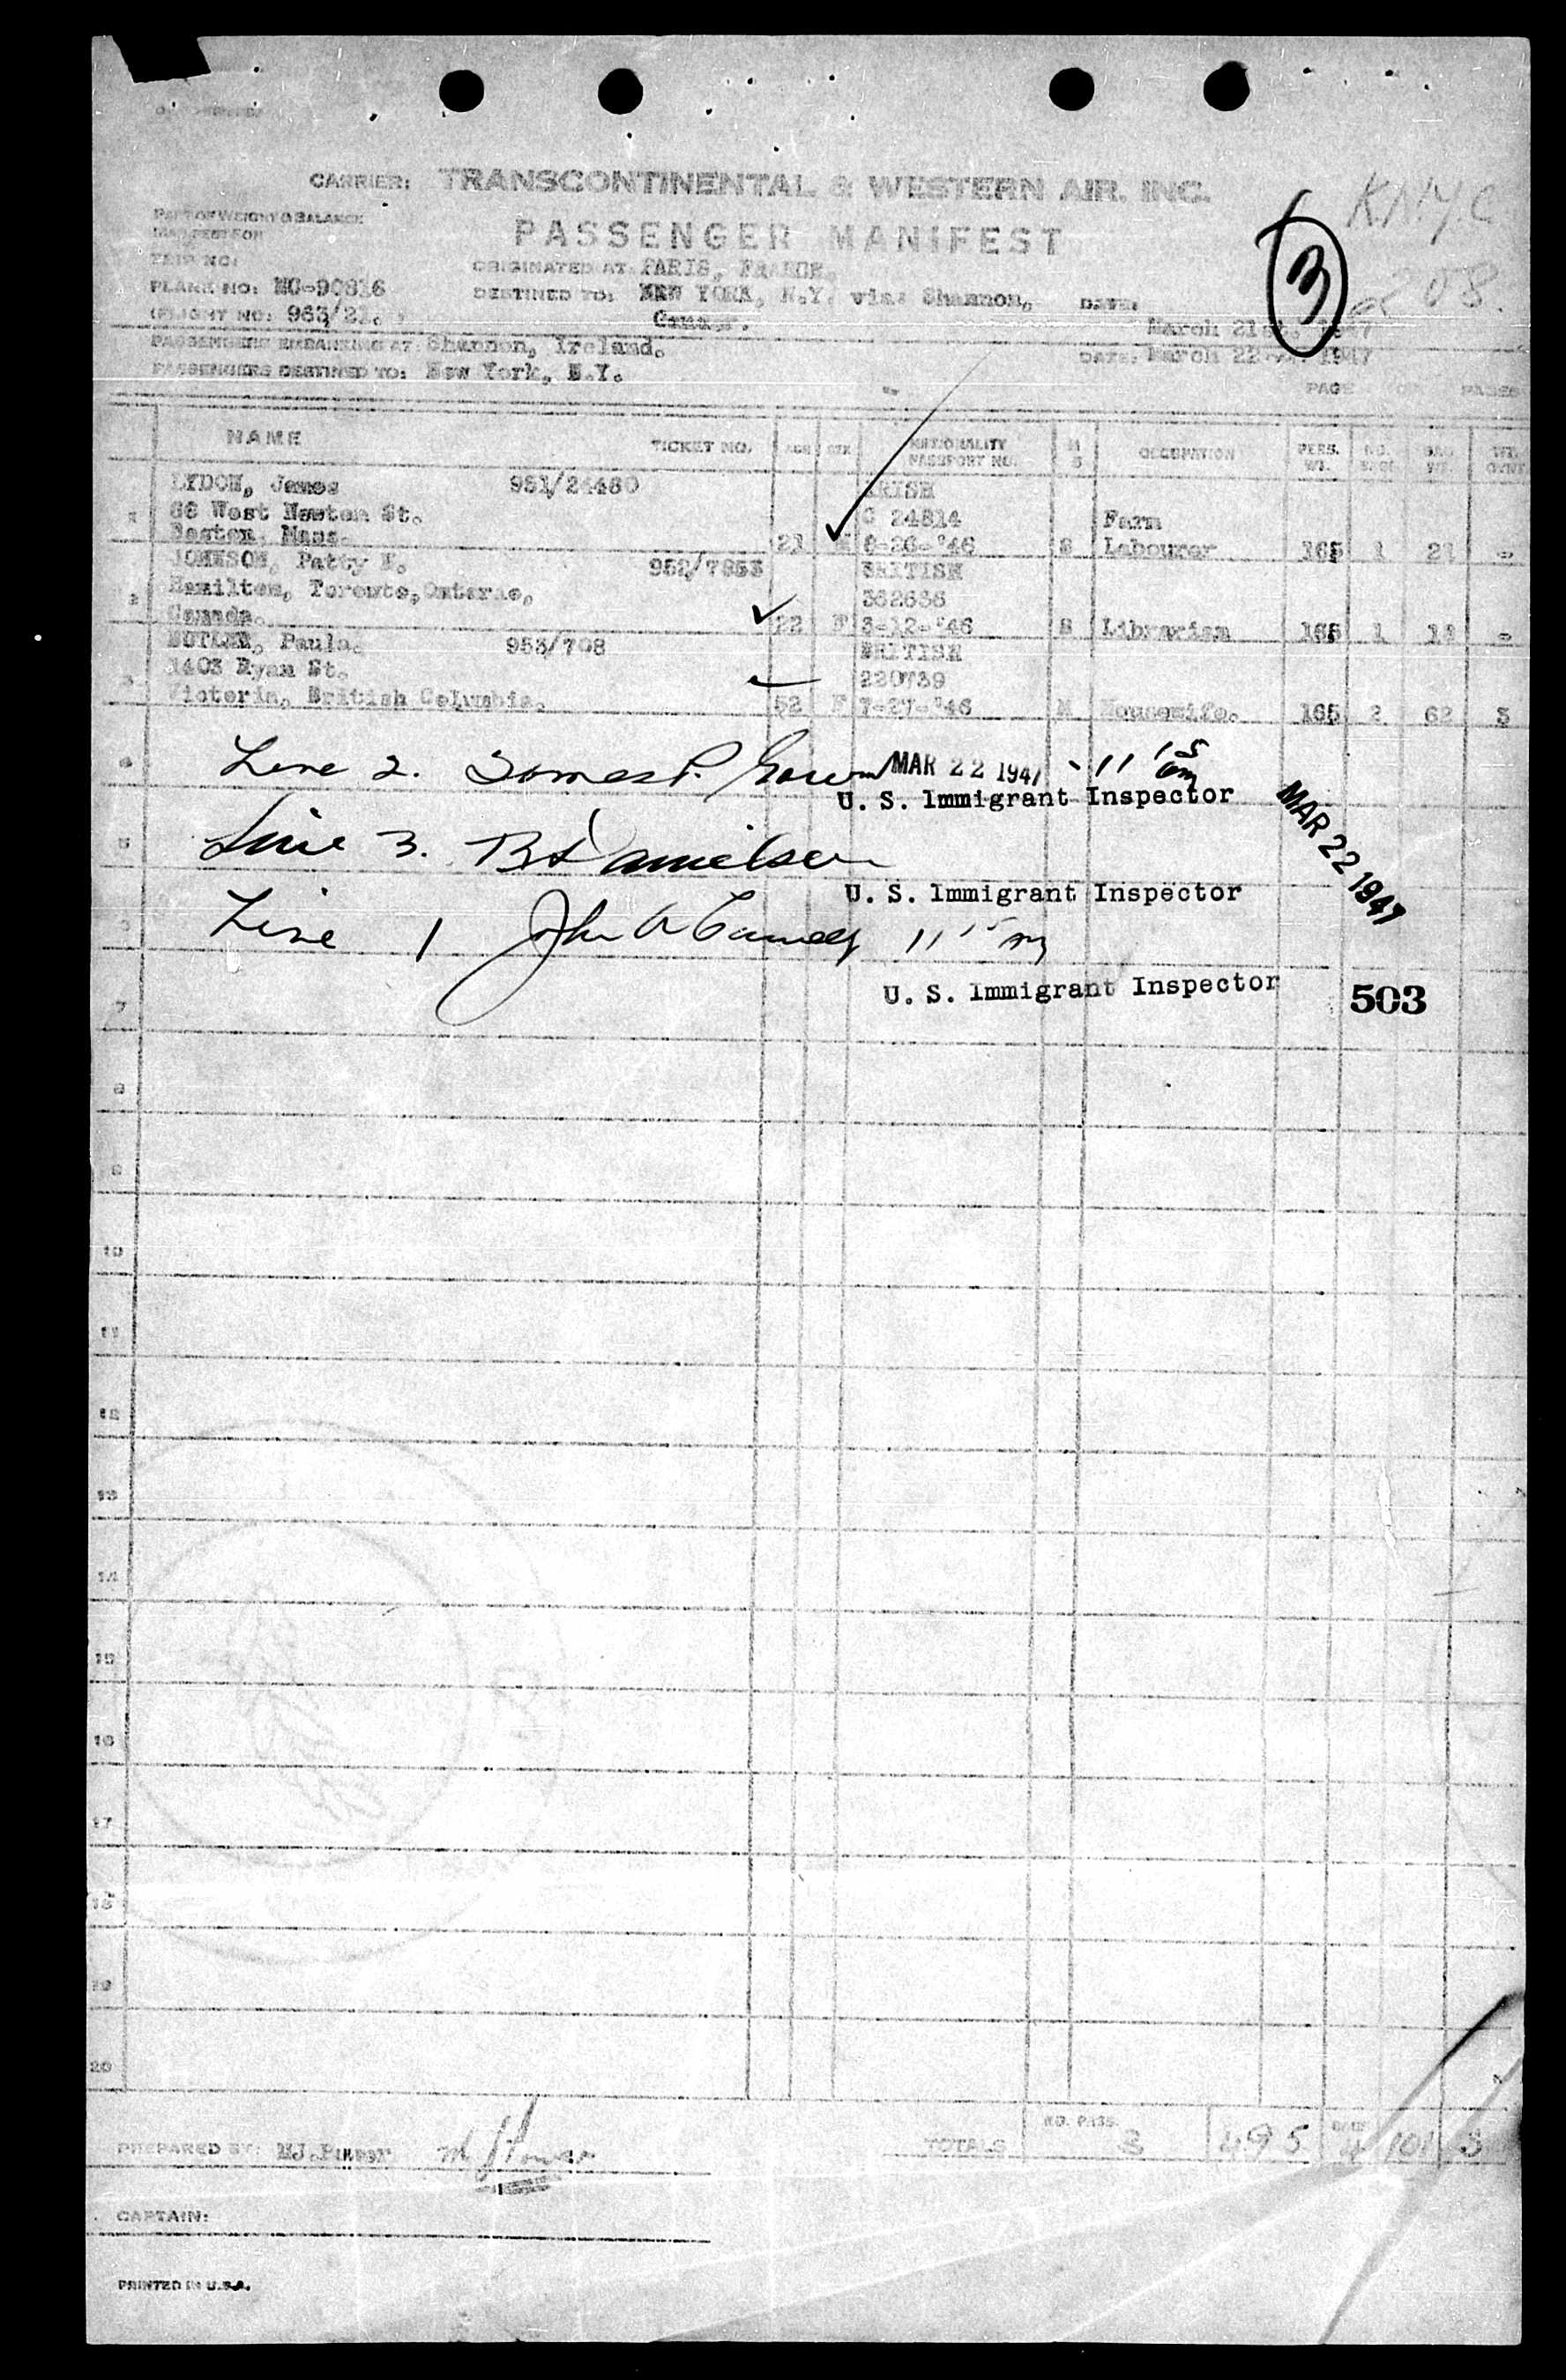 CARRIER: TRANSCONTINENTAL & WESTERN AIR, INC.
K.N.Y.C
PART OF WEIGHT & BALANCE
MANIFEST FOR
PASSENGER MANIFEST
3
TRIP NO:
ORIGINATED AT: PARIS, FRANCE.
208
PLANE NO: NC-90816
DESTINED TO: NEW YORK, N.Y. via: Shannon,
DATE:
(FLIGHT NO: 963/21. )
March 21st, 1947
PASSENGERS EMBARKING AT: Shannon, Ireland.
DATE: March 22nd, 1947
PASSENGERS DESTINED TO: New York, N.Y.
PAGE OF PAGES
NAME TICKET NO. AGE SEX NATIONALITY PASSPORT NO. M S OCCUPATION PERS. WT. NO. BAGS BAG WT. WT. OVNT.
LYDON, James 951/24480 IRISH
1 66 West Newton St. C 24814 Farm
Boston, Mass. 21 M 8-26-'46 S Labourer 165 1 21 -
JOHNSON, Patty N. 952/7953 BRITISH
2 Hamilton, Toronto, Ontario, 362636
Canada. 22 F 3-12-'46 S Librarian 165 1 18 -
BUTLER, Paula. 953/708 BRITISH
3 1403 Ryan St. 220739
Victoria, British Columbia. 52 F 7-27-'46 M Housewife. 165 2 62 3
4 Line 2. James P. MAR 22 1947 - 11 15 am
U. S. Immigrant Inspector
MAR 22 1947
5 Line 3. Danielsen
U. S. Immigrant Inspector
6 Line 1 John A 11 15 am
U. S. Immigrant Inspector
503
7
8
9
10
11
12
13
14
15
16
17
18
19
20
PREPARED BY: TOTALS NO. PASS. 3 495 BAGS 4 101 3
CAPTAIN:
PRINTED IN U.S.A.